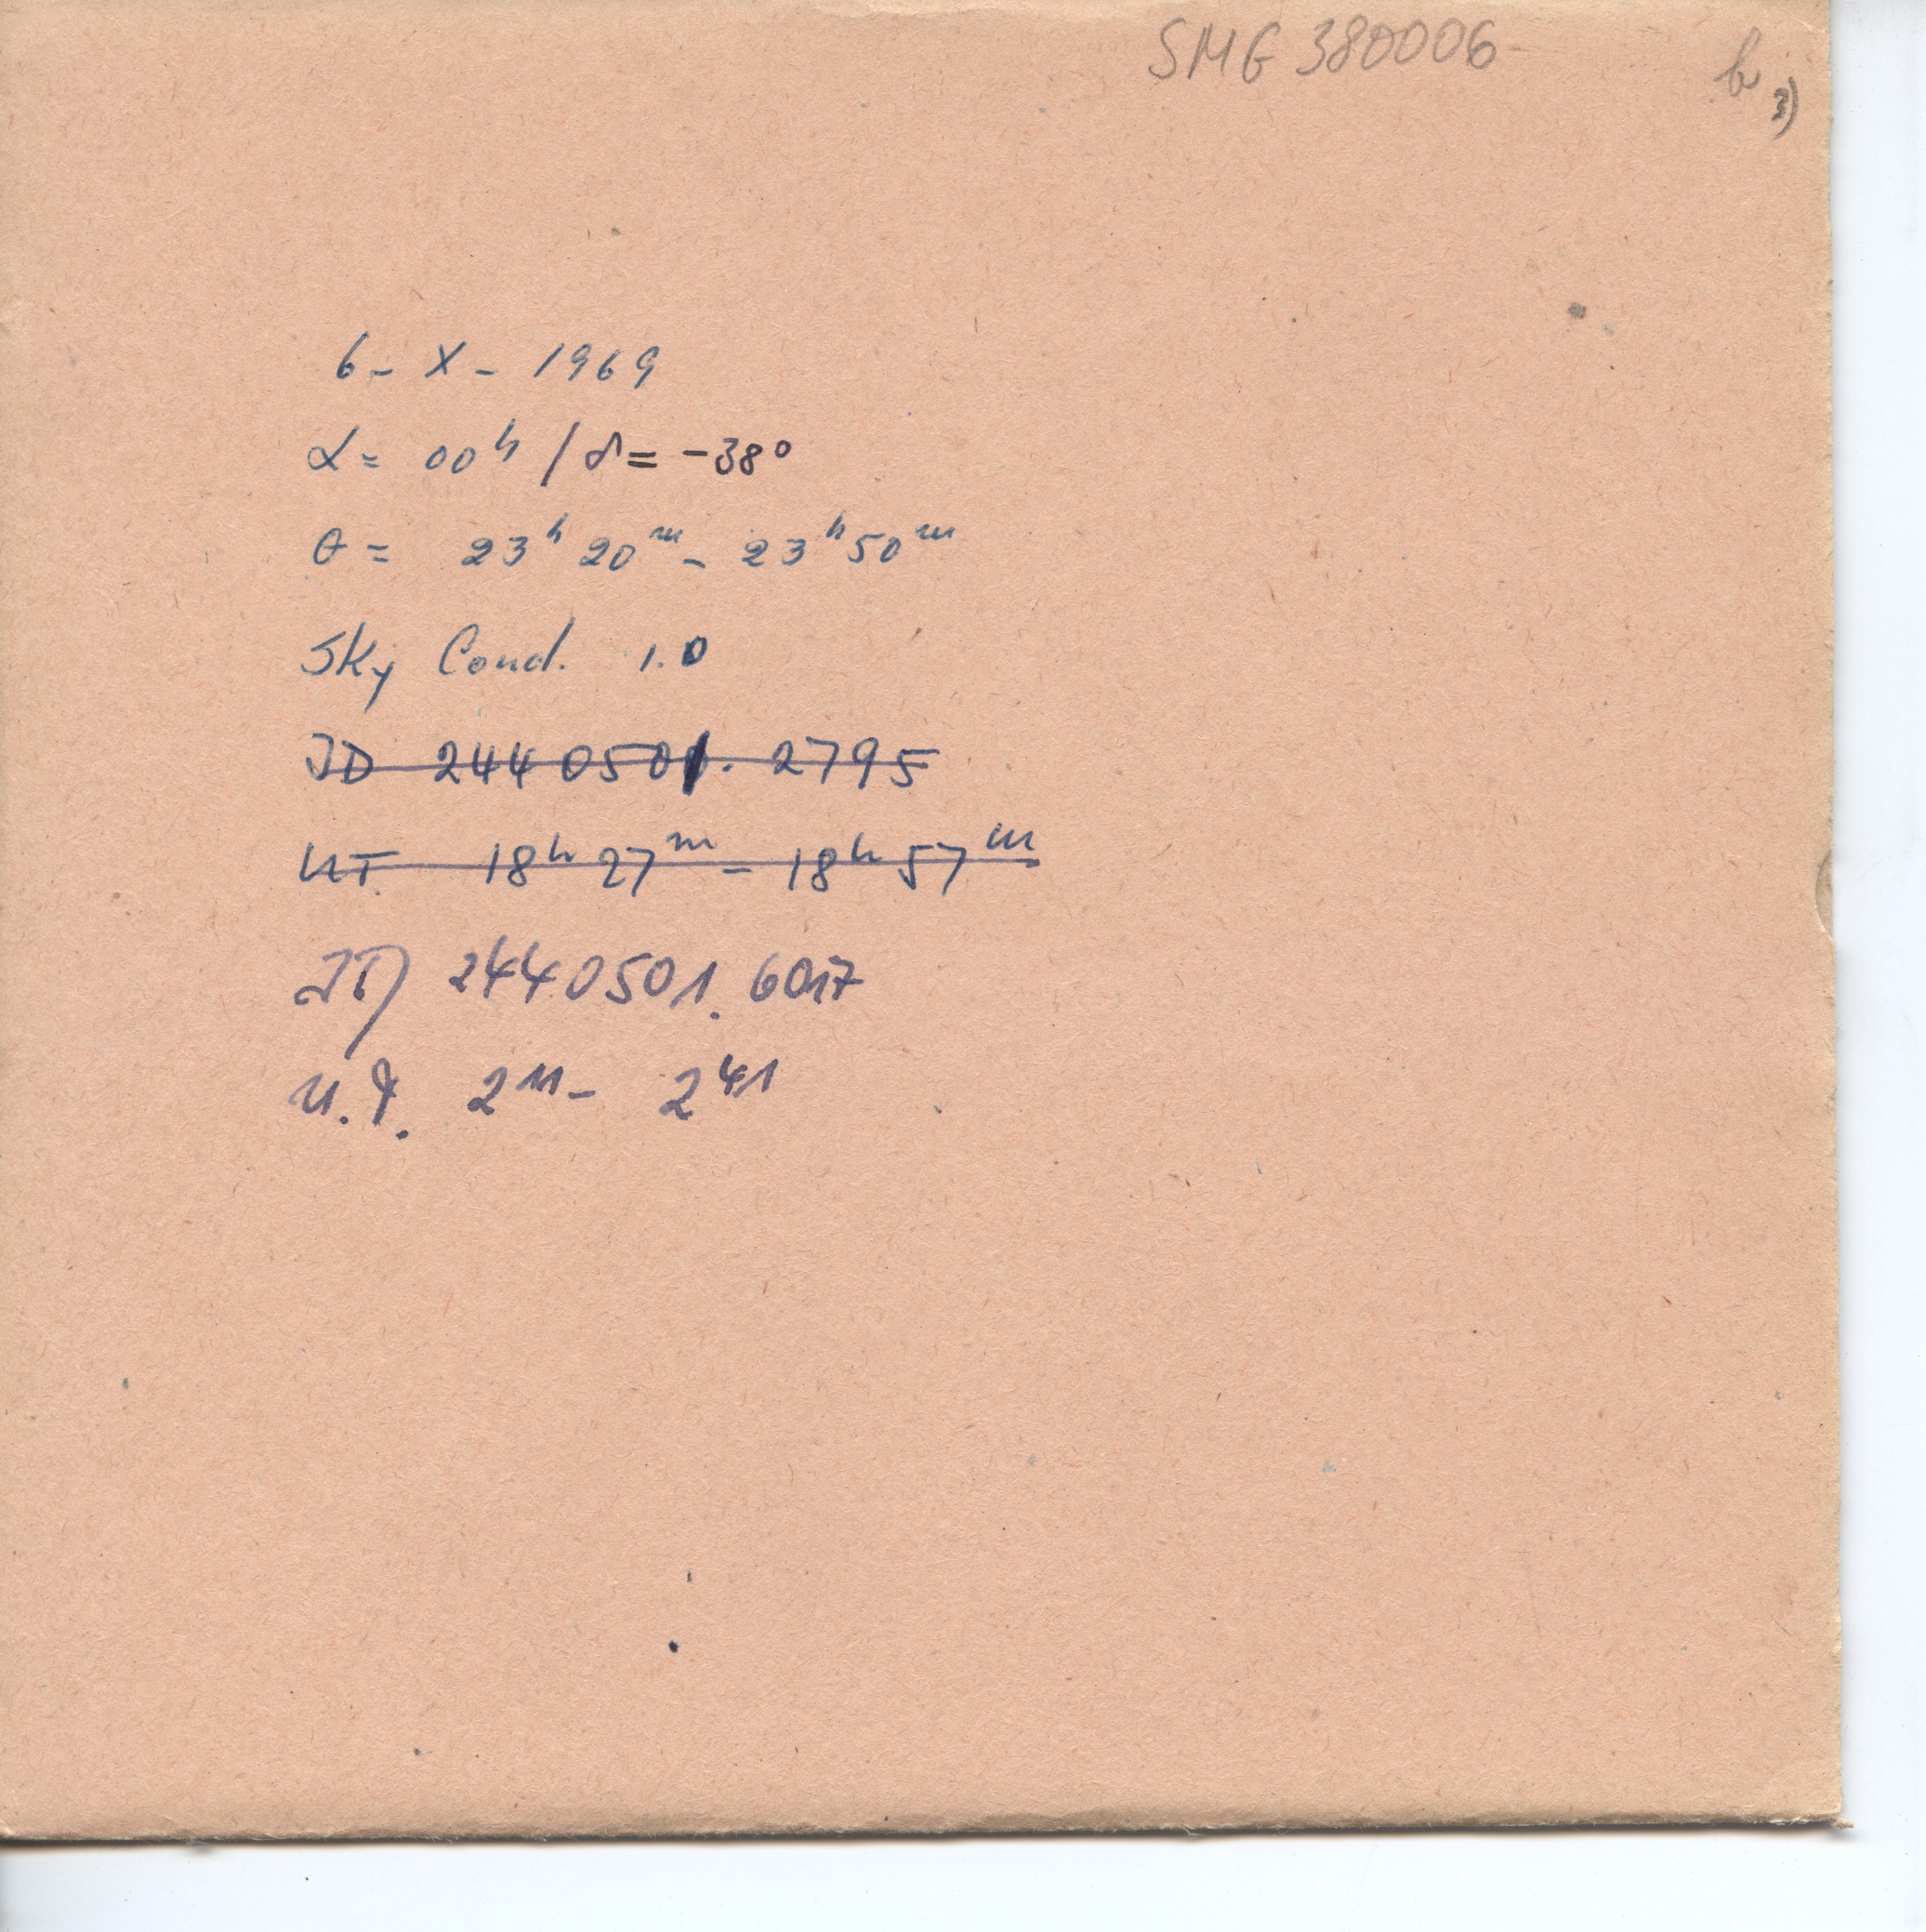 SMG 380006
b 3)
6 - X - 1969
α = 00ʰ / δ = -38°
θ = 23ʰ 20ᵐ - 23ʰ 50ᵐ
Sky Cond. 1.0
JD 2440501. 2795
UT. 18ʰ 27ᵐ - 18ʰ 57ᵐ
JD 2440501. 6017
U.T. 2¹¹ - 2⁴¹